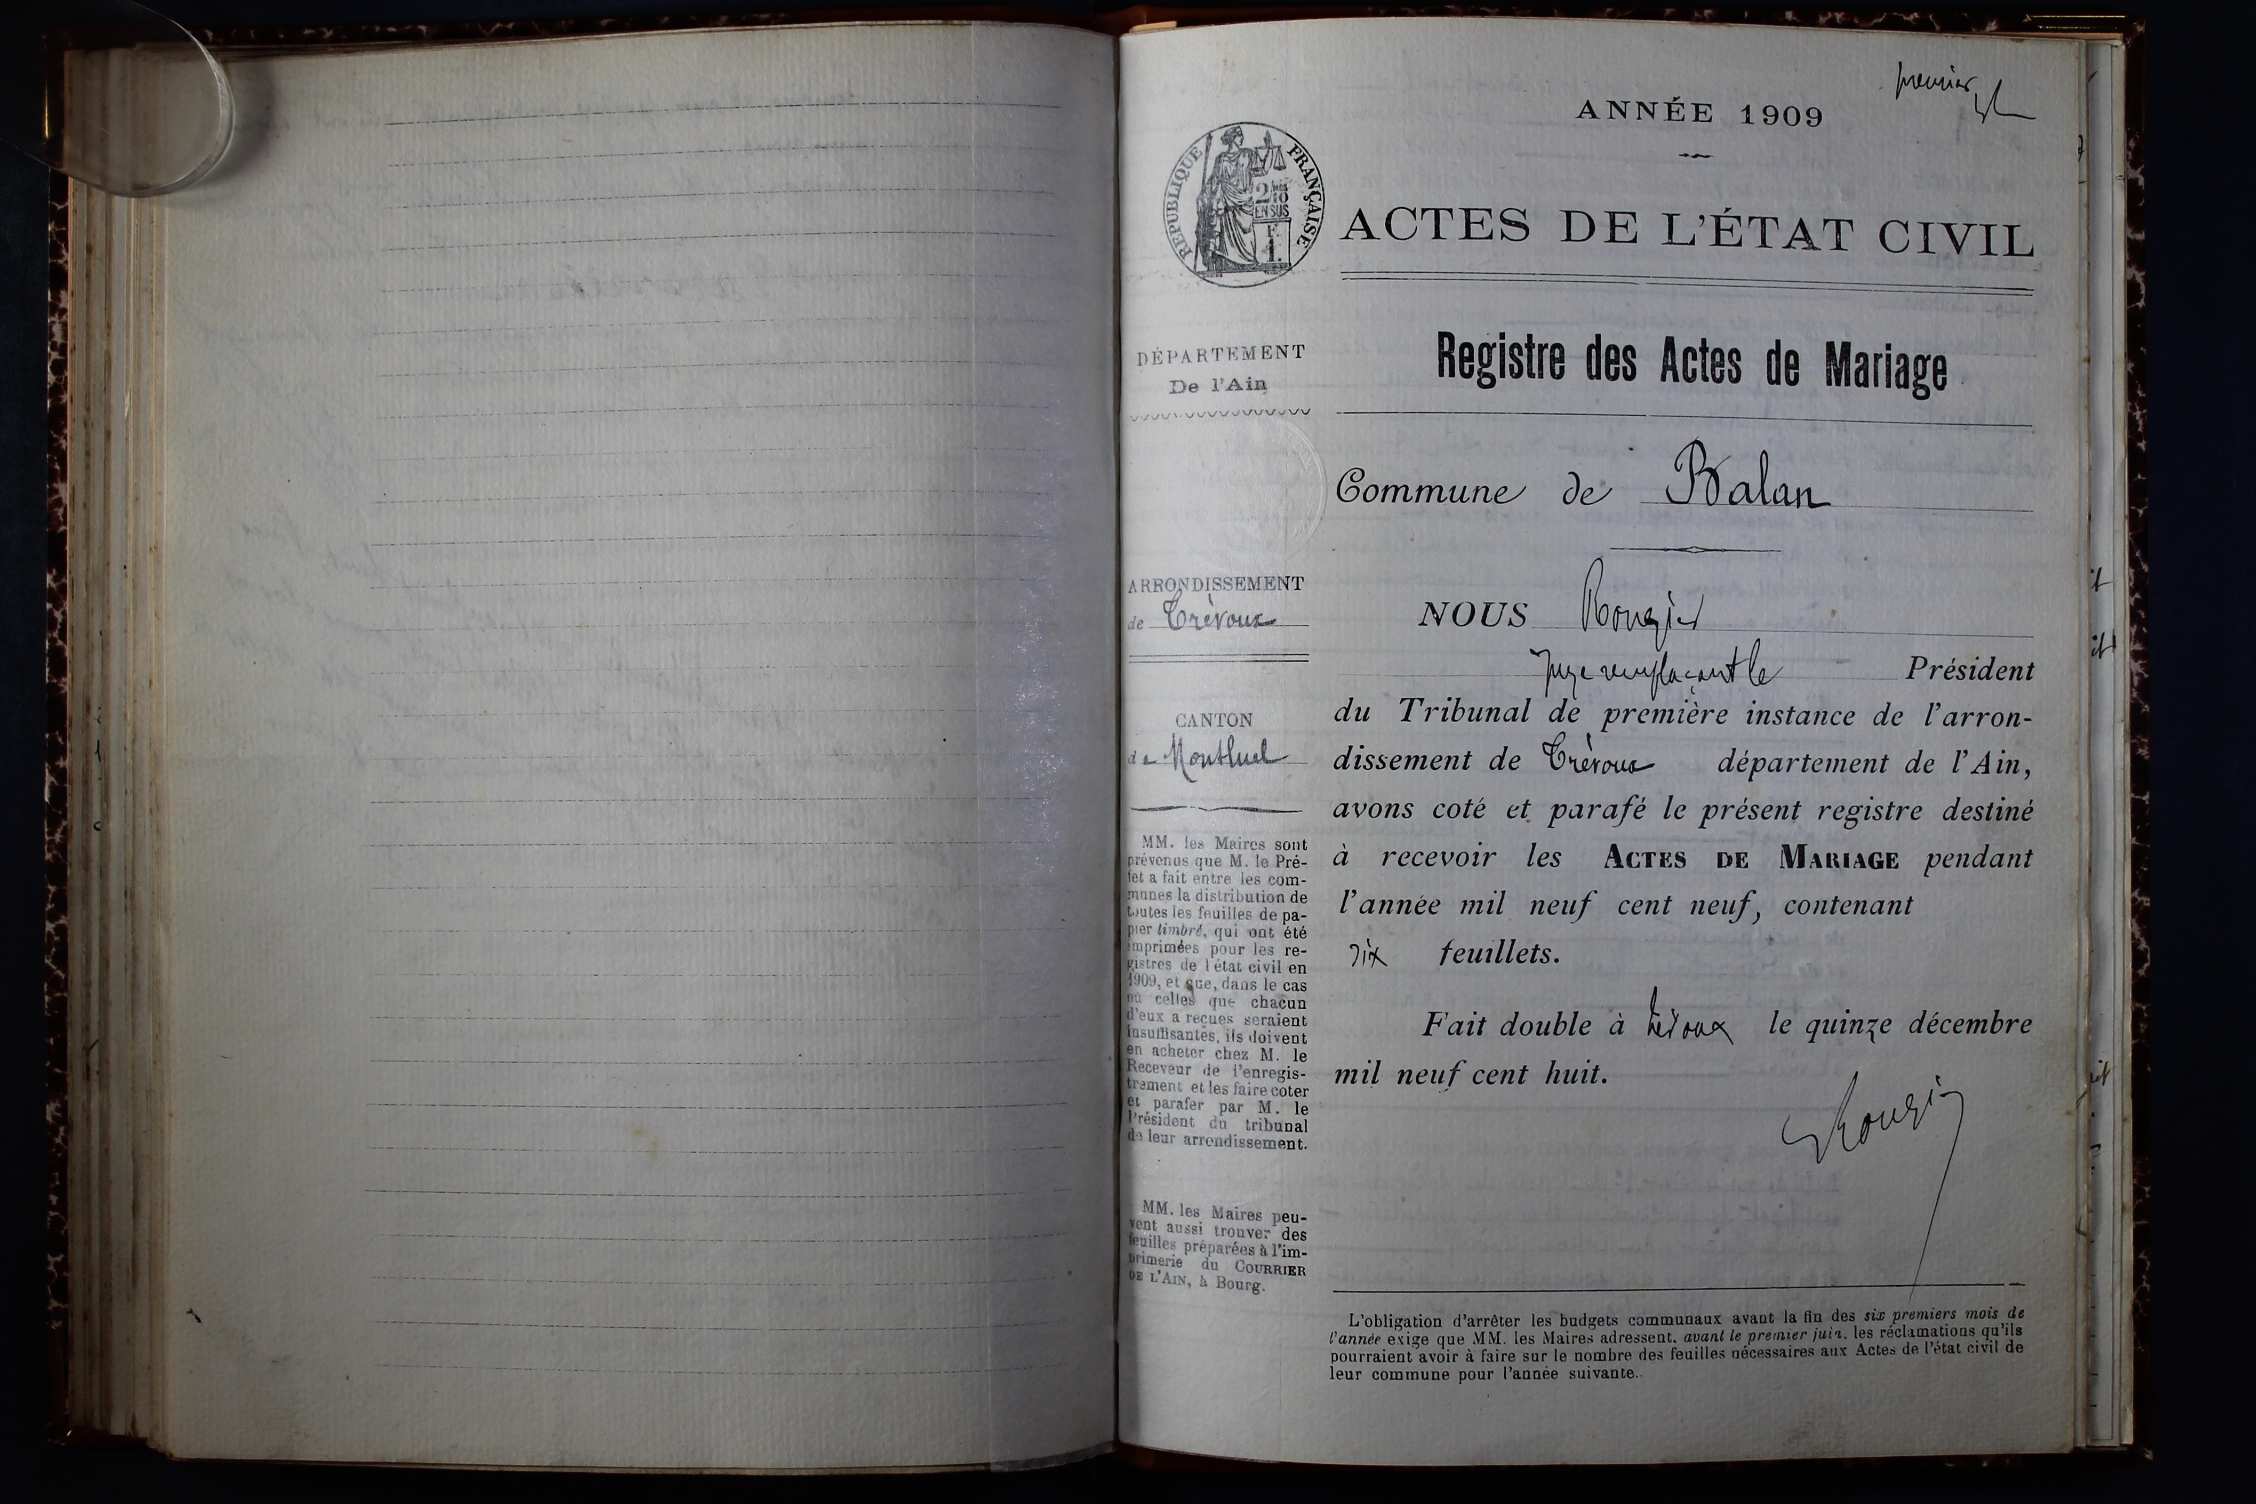 premier
ANNÉE 1909
RÉPUBLIQUE FRANÇAISE
2/10
EN SUS
F.
1.
ACTES DE L'ÉTAT CIVIL
Registre des Actes de Mariage
DÉPARTEMENT
De l'Ain
Commune de Balan
ARRONDISSEMENT
de Trévoux
CANTON
de Montluel
MM. les Maires sont
prévenus que M. le Pré-
fet a fait entre les com-
munes la distribution de
toutes les feuilles de pa-
pier timbré, qui ont été
imprimées pour les re-
gistres de l'état civil en
1909, et que, dans le cas
où celles que chacun
d'eux a reçues seraient
insuffisantes, ils doivent
en acheter chez M. le
Receveur de l'enregis-
trement et les faire coter
et parafer par M. le
Président du tribunal
de leur arrondissement.
MM. les Maires peu-
vent aussi trouver des
feuilles préparées à l'im-
primerie du COURRIER
DE L'AIN, à Bourg.
NOUS Rougier
Juge remplaçant le Président
du Tribunal de première instance de l'arron-
dissement de Trévoux département de l'Ain,
avons coté et parafé le présent registre destiné
à recevoir les ACTES DE MARIAGE pendant
l'année mil neuf cent neuf, contenant
six feuillets.
Fait double à Trévoux le quinze décembre
mil neuf cent huit.
Rougier
L'obligation d'arrêter les budgets communaux avant la fin des six premiers mois de
l'année exige que MM. les Maires adressent, avant le premier juin, les réclamations qu'ils
pourraient avoir à faire sur le nombre des feuilles nécessaires aux Actes de l'état civil de
leur commune pour l'année suivante.